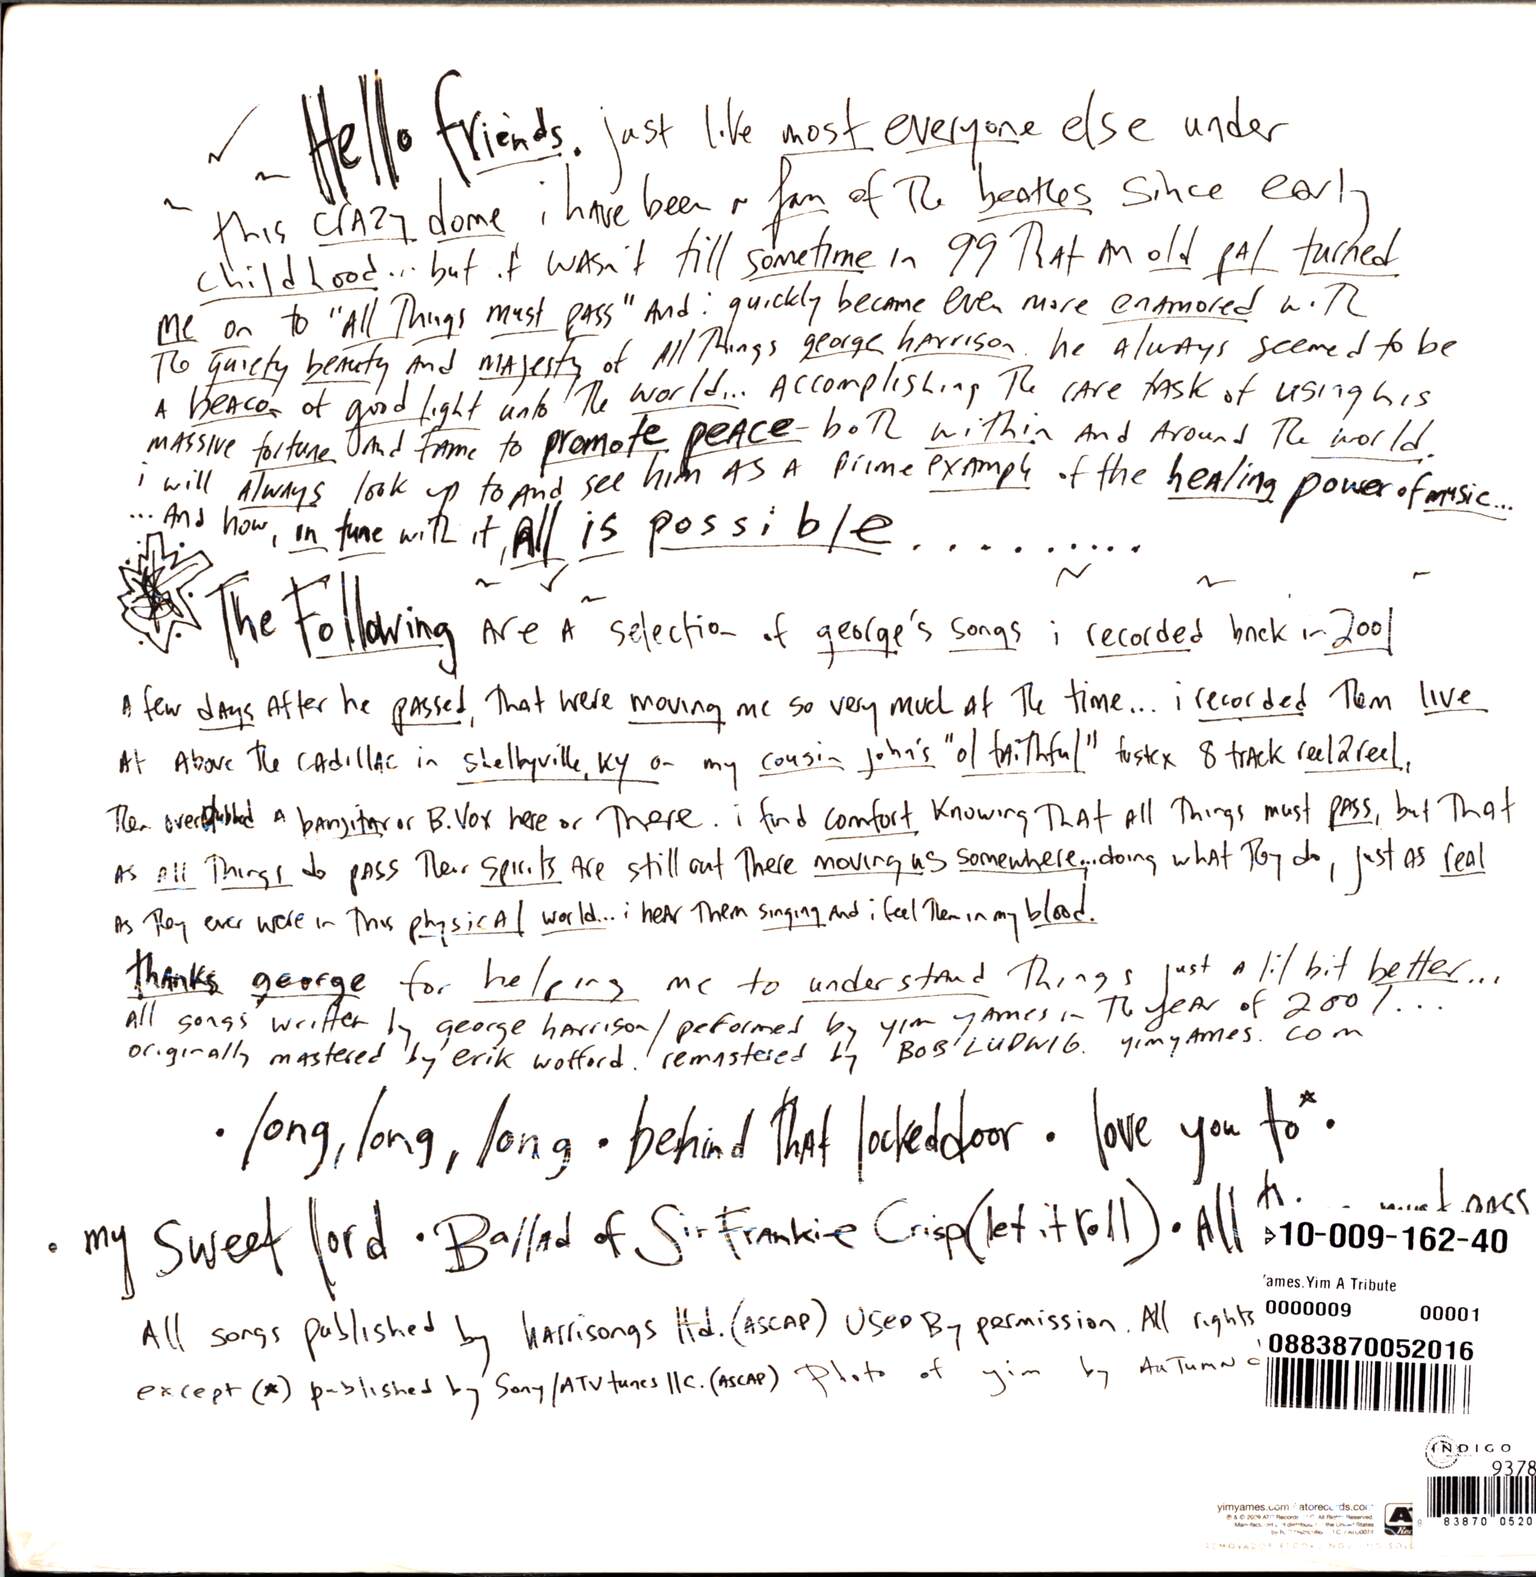 Hello friends. just like most everyone else under
this crazy dome i have been a fan of The beatles since early
childhood... but it wasn't till sometime in 99 That an old pal turned
me on to "All Things must pass" And i quickly became even more enamored with
The quiety beauty and majesty of All Things george harrison. he always seemed to be
a beacon of good light unto The world... accomplishing The rare task of using his
massive fortune and fame to promote peace- both within and around The world.
i will always look up to and see him as a prime example of the healing power of music...
...And how, in tune with it, All is possible..........
The Following are a selection of george's songs i recorded back in 2001
a few days after he passed, That were moving me so very much at The time... i recorded Them live
at Above The Cadillac in shelbyville, KY on my cousin john's "ol faithful" fostex 8 track reel2reel,
Then overdubbed a banjitar or B.Vox here or There. i find comfort knowing That all Things must pass, but That
as all Things do pass Their spirits are still out There moving us somewhere...doing what They do, just as real
as They ever were in This physical world... i hear Them singing and i feel Them in my blood.
thanks george for helping me to understand Things just a lil bit better...
All songs written by george harrison/peformed by yim yames in The year of 2001...
originally mastered by erik wofford. remastered by BOB LUDWIG. yimyames.com
• long, long, long • behind That locked door • love you to* •
• my sweet lord • Ballad of Sir Frankie Crisp (let it roll) • All must pass
10-009-162-40
'ames.Yim A Tribute
0000009 00001
0883870052016
All songs published by harrisongs ltd. (ASCAP) used By permission. All rights
except (*) published by Sony/ATV tunes llc. (ASCAP) Photo of yim by Autumn
INDIGO
9378
yimyames.com atorecords.com
83870 0520